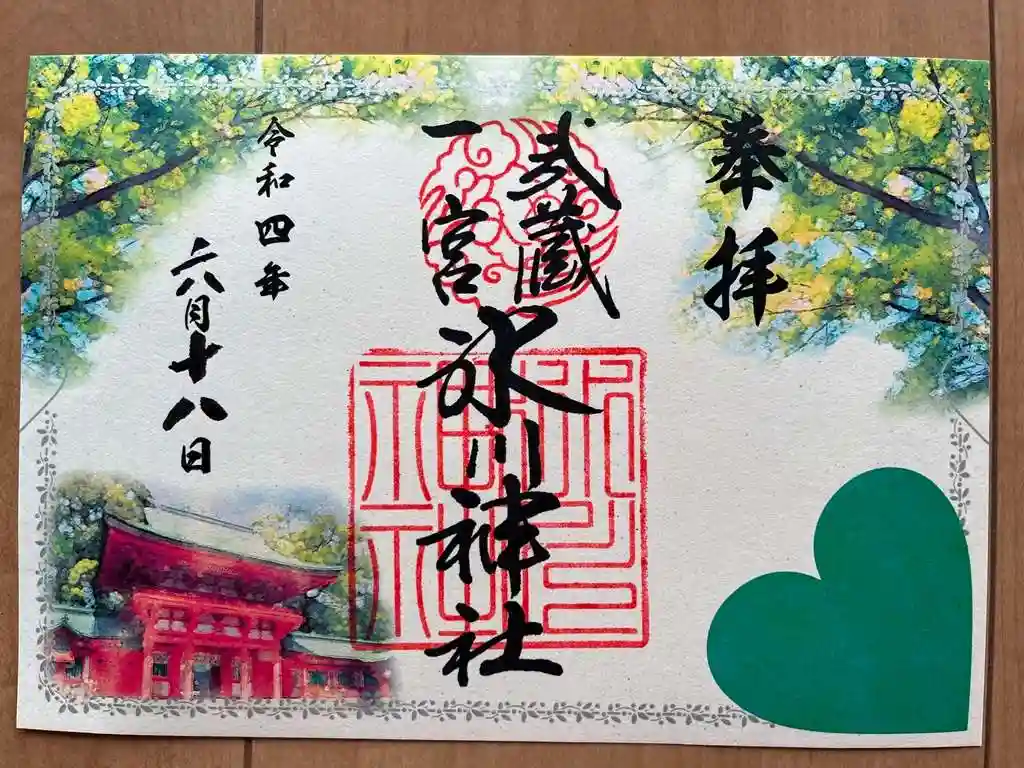 奉拝
武蔵
一宮
氷川神社
令和四年
六月十八日
氷川
神社